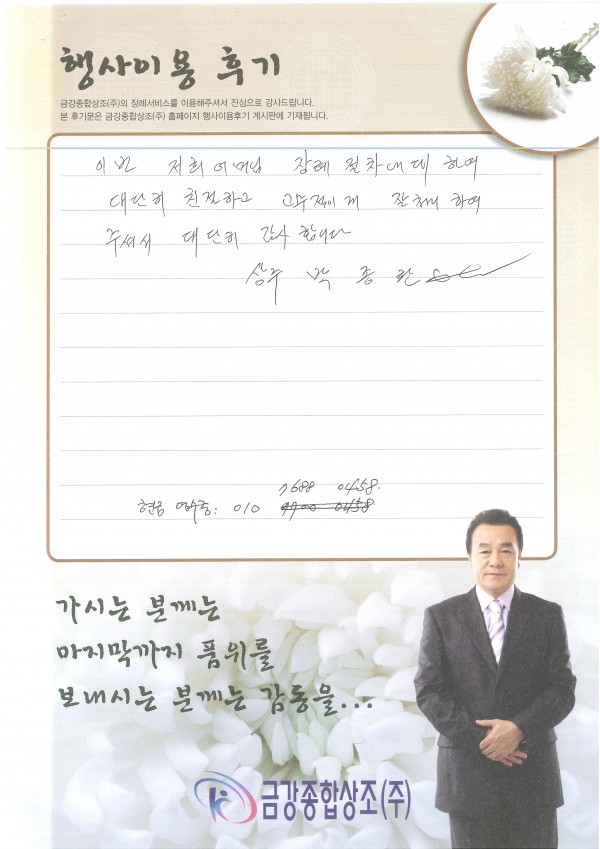 행사이용 후기
금강종합상조(주)의 장례서비스를 이용해주셔서 진심으로 감사드립니다.
본 후기문은 금강종합상조(주) 홈페이지 행사이용후기 게시판에 기재됩니다.
이번 저희 어머님 장례 절차에 대하여
대단히 친절하고 잘 하여
주셔서 대단히 감사 합니다
상주 박 종
7688 0458.
현금 영수증: 010
가시는 분께는
마지막까지 품위를
보내시는 분께는 감동을...
금강종합상조(주)